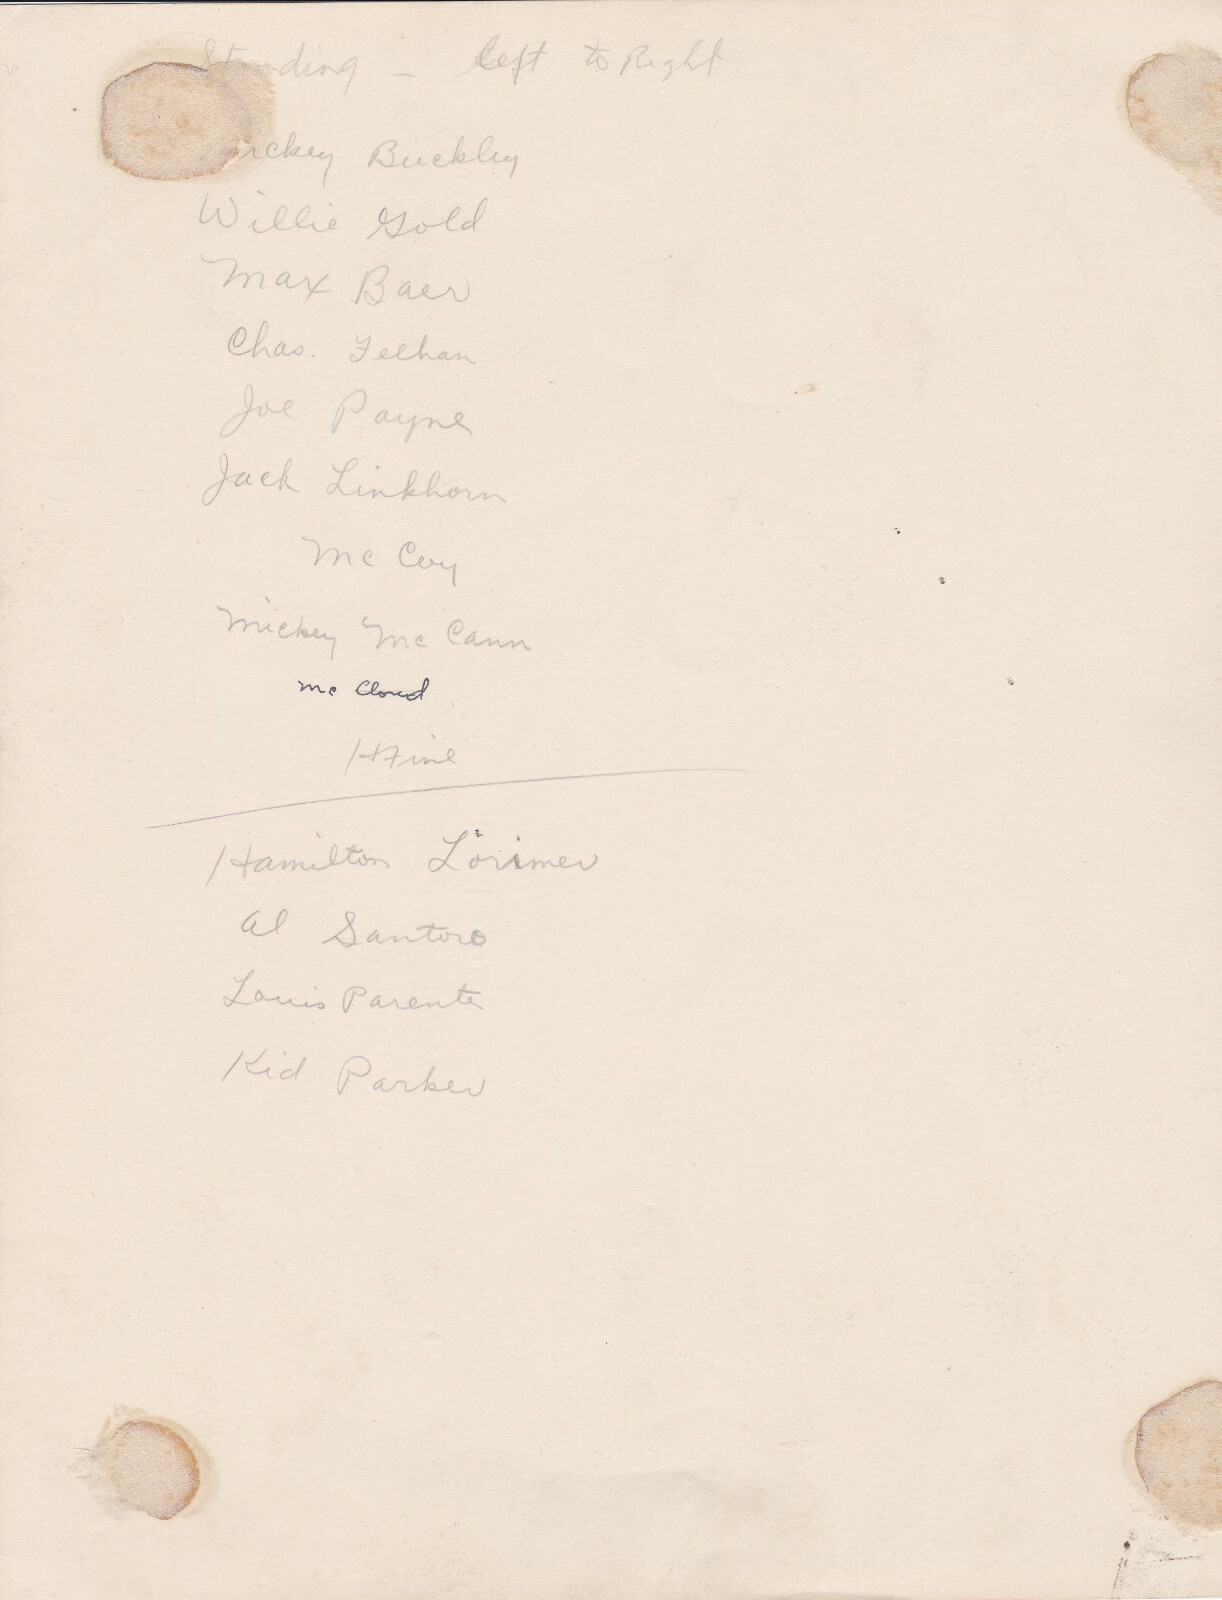 Standing - left to Right
Mickey Buckley
Willie Gold
Max Baer
Chas. Feehan
Joe Payne
Jack Linkhorn
Mc Coy
Mickey Mc Cann
Mc Cloud
H Fine
Hamilton Lorimer
Al Santoro
Louis Parente
Kid Parker